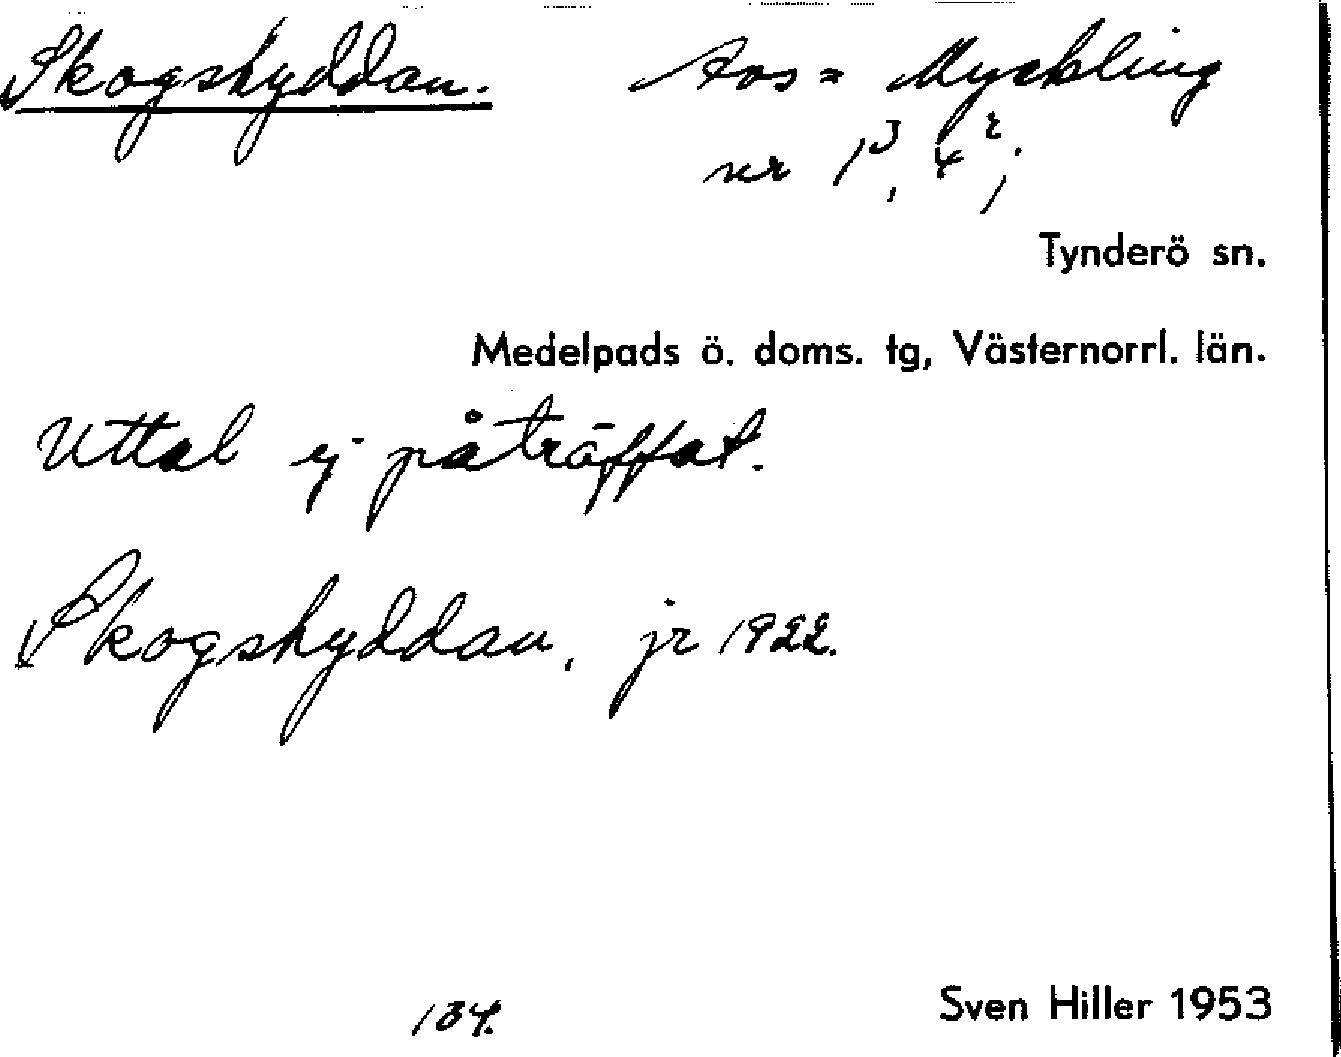 Skogshyddan. Avs = Myckling
nr 1³, 4²;
Tynderö sn.
Medelpads ö. doms. tg, Västernorrl. län.
Uttal ej påträffat.
Skogshyddan, jr 1922.
134.
Sven Hiller 1953